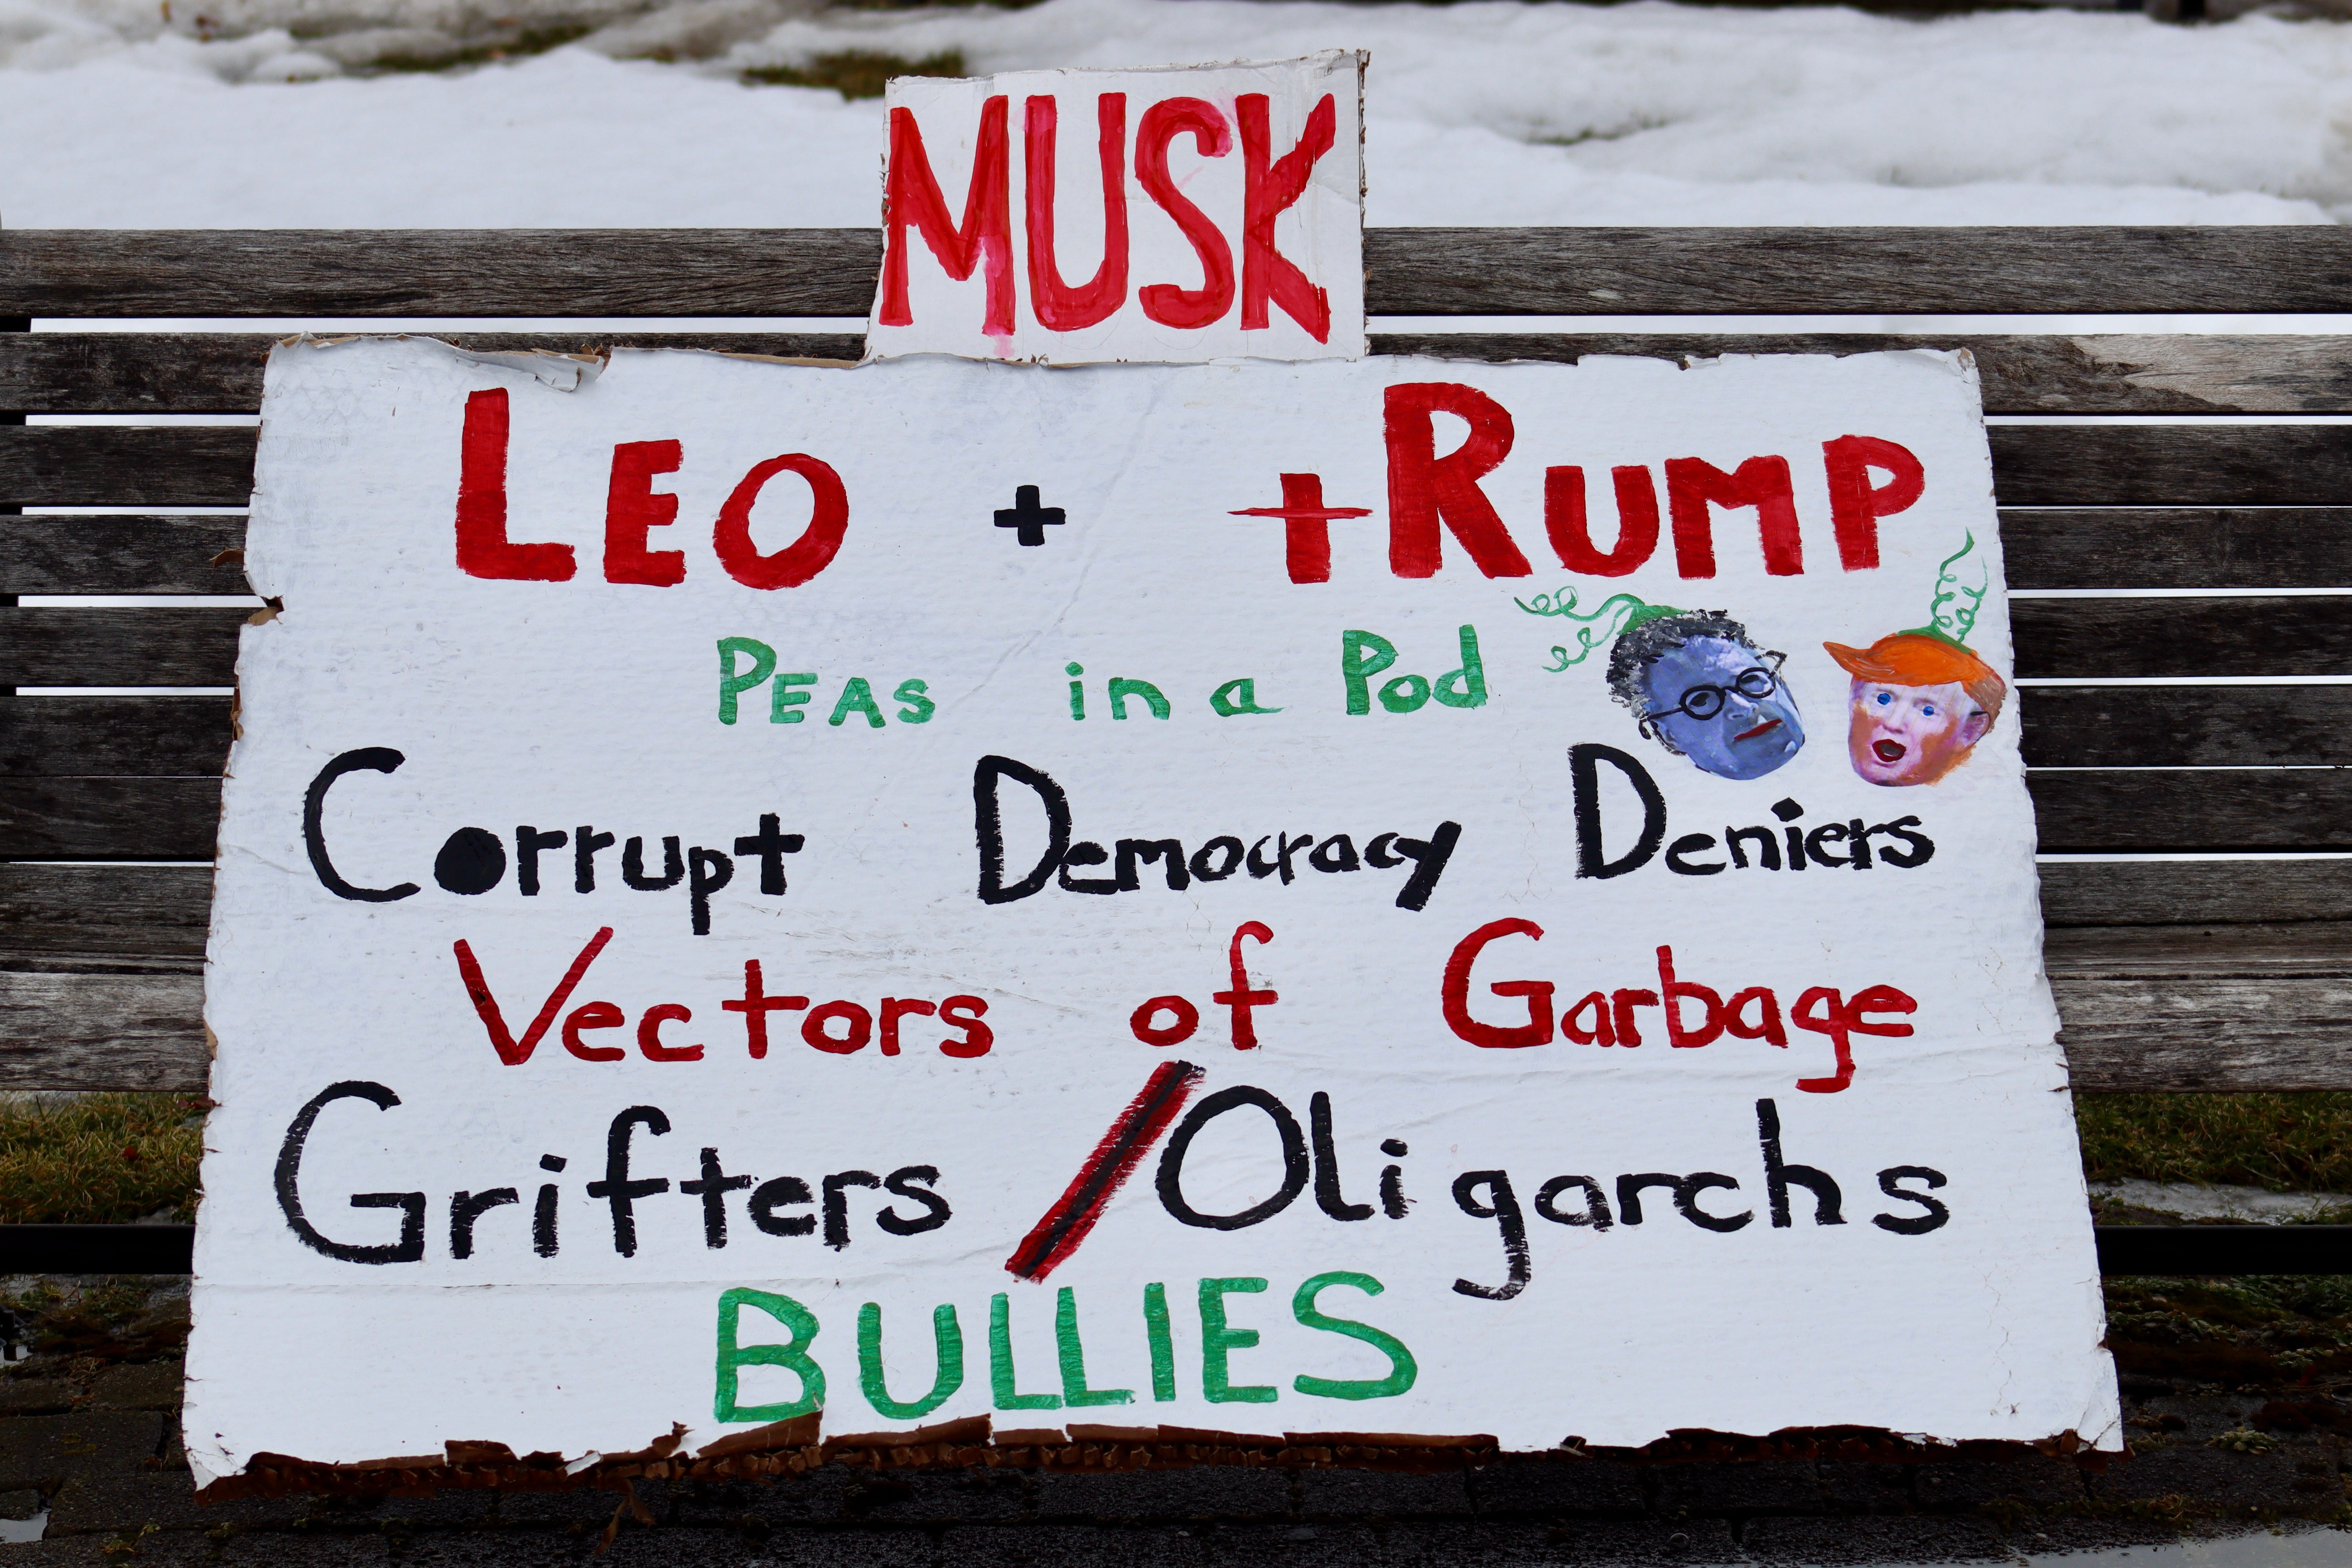 MUSK
LEO + tRUMP
PEAS in a Pod
Corrupt Democracy Deniers
Vectors of Garbage
Grifters / Oligarchs
BULLIES